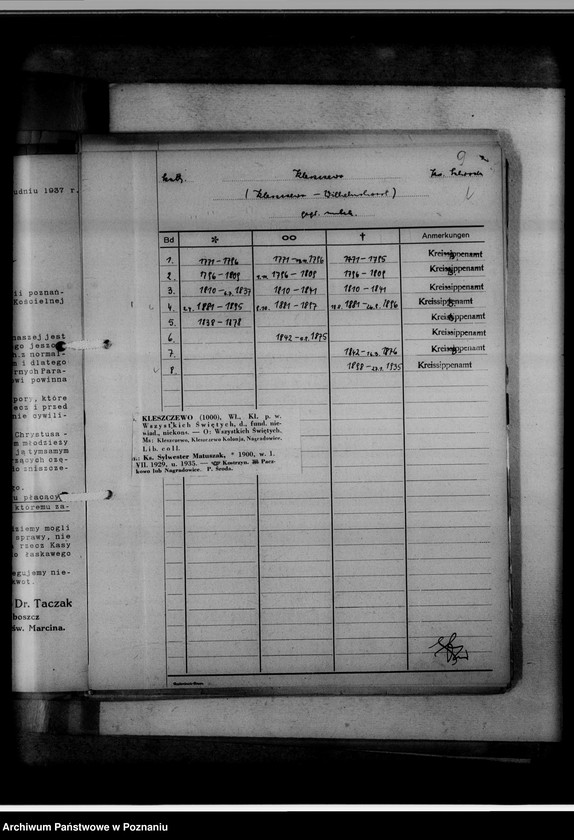 udniu 1937 r.
ii poznań-
Kościelnej
naszej jest
go jeszcze
h.z normal-
m i dlatego
rnych Para-
wi powinna
pory, które
ecz i przed
nie cywili-
Chrystusa -
m młodzieży
ją tymsamym
ących czę-
o zniszcze-
go.
u płacący
któremu za-
ziemy mogli
sprawy, nie
rzecz Kasy
o łaskawego
egujemy nie-
kwot.
Dr. Taczak
boszcz
św. Marcina.
9
kath.
Kleszczewo
Krs. Schroda
(Kleszczewo - Wilhelmshorst)
Bd * ∞ † Anmerkungen
1. 1771-1796 1771- 1796 1771-1795 Kreissippenamt
2. 1796-1809 1796-1809 1796-1809 Kreissippenamt
3. 1810- 1837 1810-1841 1810-1841 Kreissippenamt
4. 1881-1895 1881-1917 1881- 1896 Kreissippenamt
5. 1838-1878 Kreissippenamt
6. 1842- 1875 Kreissippenamt
7. 1842- 1876 Kreissippenamt
8. 1898- 1935 Kreissippenamt
KLESZCZEWO (1000), Wł., Kl. p. w.
Wszystkich Świętych, d., fund. nie-
wiad., niekons. — O: Wszystkich Świętych.
Ms: Kleszczewo, Kleszczewo Kolonja, Nagradowice.
Lib. coll.
Ks. Sylwester Matuszak, * 1900, w. 1.
VII. 1929, u. 1935. — Kostrzyn. Pacz-
kowo lub Nagradowice. P. Środa.
Archiwum Państwowe w Poznaniu